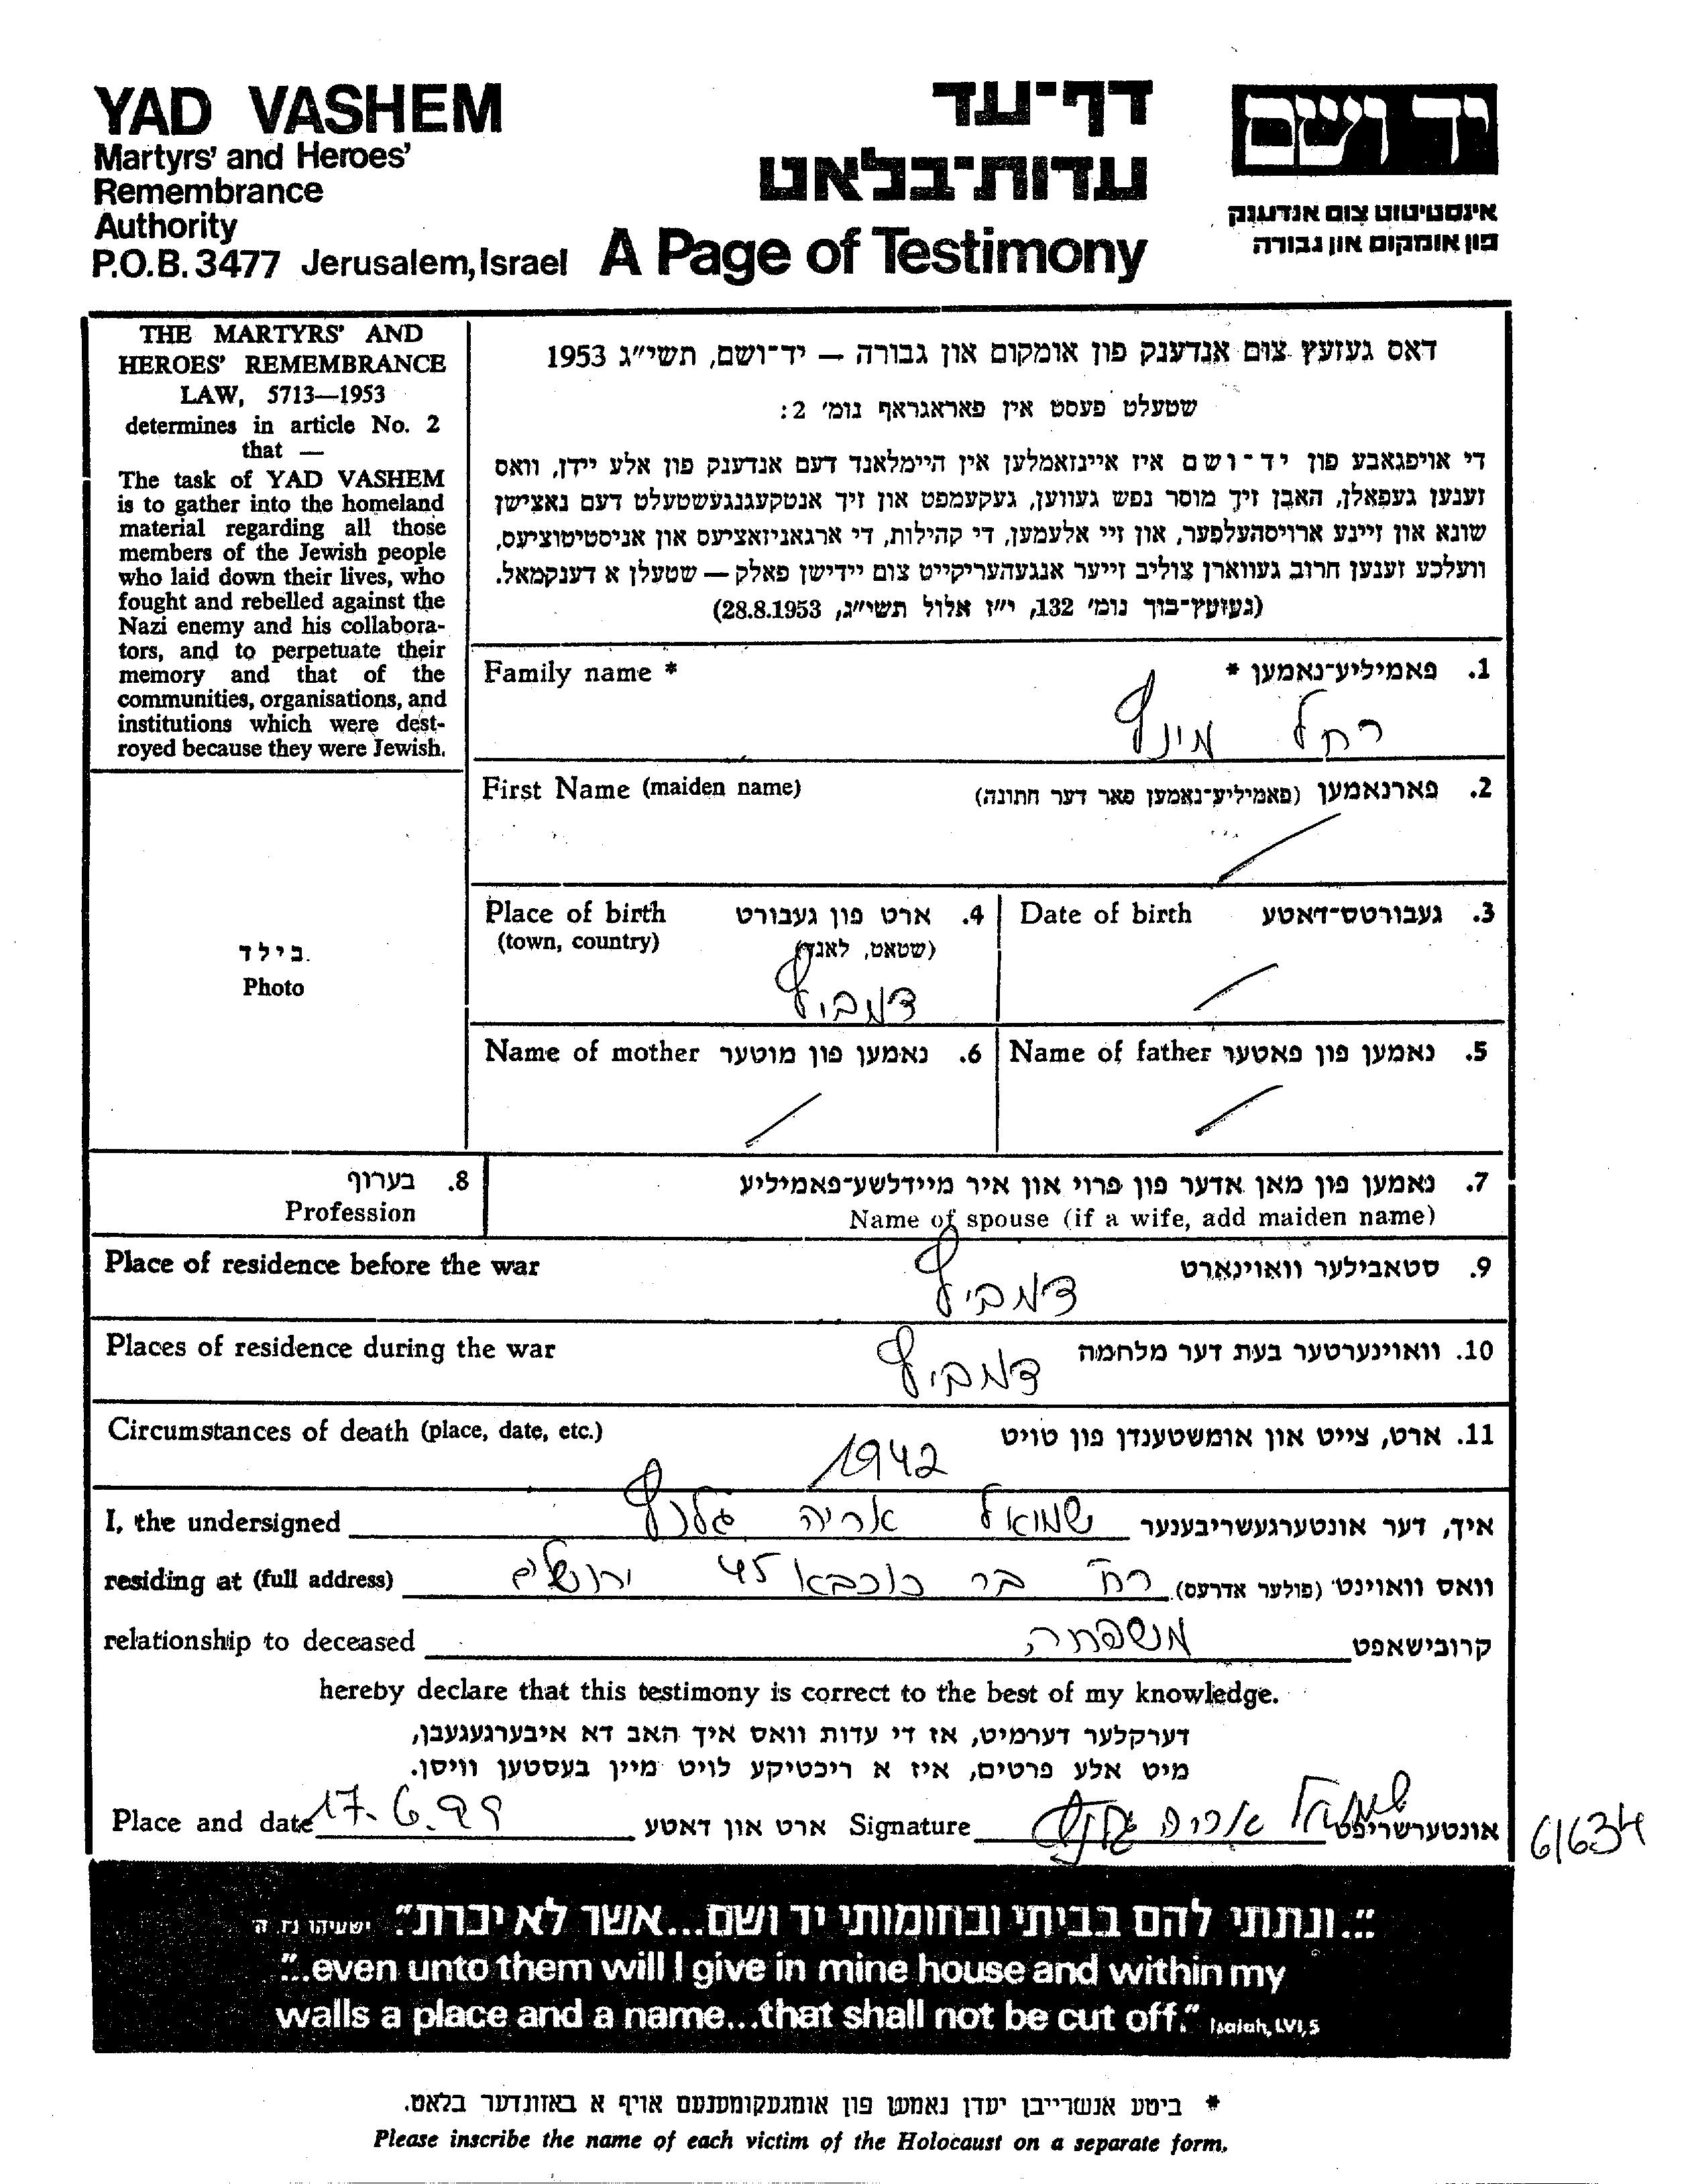 YAD VASHEM
Martyrs' and Heroes'
Remembrance
Authority
P.O.B. 3477 Jerusalem, Israel
דף-עד
עדות-בלאט
A Page of Testimony
יד ושם
אינסטיטוט צום אנדענק
פון אומקום און גבורה
THE MARTYRS' AND
HEROES' REMEMBRANCE
LAW, 5713—1953
determines in article No. 2
that —
The task of YAD VASHEM
is to gather into the homeland
material regarding all those
members of the Jewish people
who laid down their lives, who
fought and rebelled against the
Nazi enemy and his collabora-
tors, and to perpetuate their
memory and that of the
communities, organisations, and
institutions which were dest-
royed because they were Jewish.
דאס געזעץ צום אנדענק פון אומקום און גבורה — יד-ושם, תשי"ג 1953
שטעלט פעסט אין פאראגראף נומ' 2:
די אויפגאבע פון יד-ושם איז איינזאמלען אין היימלאנד דעם אנדענק פון אלע יידן, וואס
זענען געפאלן, האבן זיך מוסר נפש געווען, געקעמפט און זיך אנטקעגנגעשטעלט דעם נאצישן
שונא און זיינע ארויסהעלפער, און זיי אלעמען, די קהילות, די ארגאניזאציעס און אניסטיטוציעס,
וועלכע זענען חרוב געווארן צוליב זייער אנגעהעריקייט צום יידישן פאלק — שטעלן א דענקמאל.
(געזעץ-בוך נומ' 132, י"ז אלול תשי"ג, 28.8.1953)
Family name * 1. פאמיליע-נאמען *
רחל מינץ
First Name (maiden name) 2. פארנאמען (פאמיליע-נאמען פאר דער חתונה)
בילד
Photo
Place of birth 4. ארט פון געבורט
(town, country) (שטאט, לאנד)
דמביץ
Date of birth 3. געבורטס-דאטע
Name of mother 6. נאמען פון מוטער
Name of father 5. נאמען פון פאטער
8. בערוף
Profession
7. נאמען פון מאן אדער פון פרוי און איר מיידלשע-פאמיליע
Name of spouse (if a wife, add maiden name)
Place of residence before the war 9. סטאבילער וואוינארט
דמביץ
Places of residence during the war 10. וואוינערטער בעת דער מלחמה
דמביץ
Circumstances of death (place, date, etc.) 11. ארט, צייט און אומשטענדן פון טויט
1942
I, the undersigned שמואל אריה איך, דער אונטערגעשריבענער
residing at (full address) רח' בר כוכבא 45 ירושלים וואס וואוינט (פולער אדרעס)
relationship to deceased משפחה קרובישאפט
hereby declare that this testimony is correct to the best of my knowledge.
דערקלער דערמיט, אז די עדות וואס איך האב דא איבערגעגעבן,
מיט אלע פרטים, איז א ריכטיקע לויט מיין בעסטען וויסן.
Place and date 17.6.99 ארט און דאטע Signature שמואל אריה אונטערשריפט
61634
"..ונתתי להם בביתי ובחומותי יד ושם...אשר לא יכרת" ישעיהו נו ה
"..even unto them will I give in mine house and within my
walls a place and a name...that shall not be cut off." Isaiah, LVI, 5
* ביטע אנשרייבן יעדן נאמען פון אומגעקומענעם אויף א באזונדער בלאט.
Please inscribe the name of each victim of the Holocaust on a separate form.